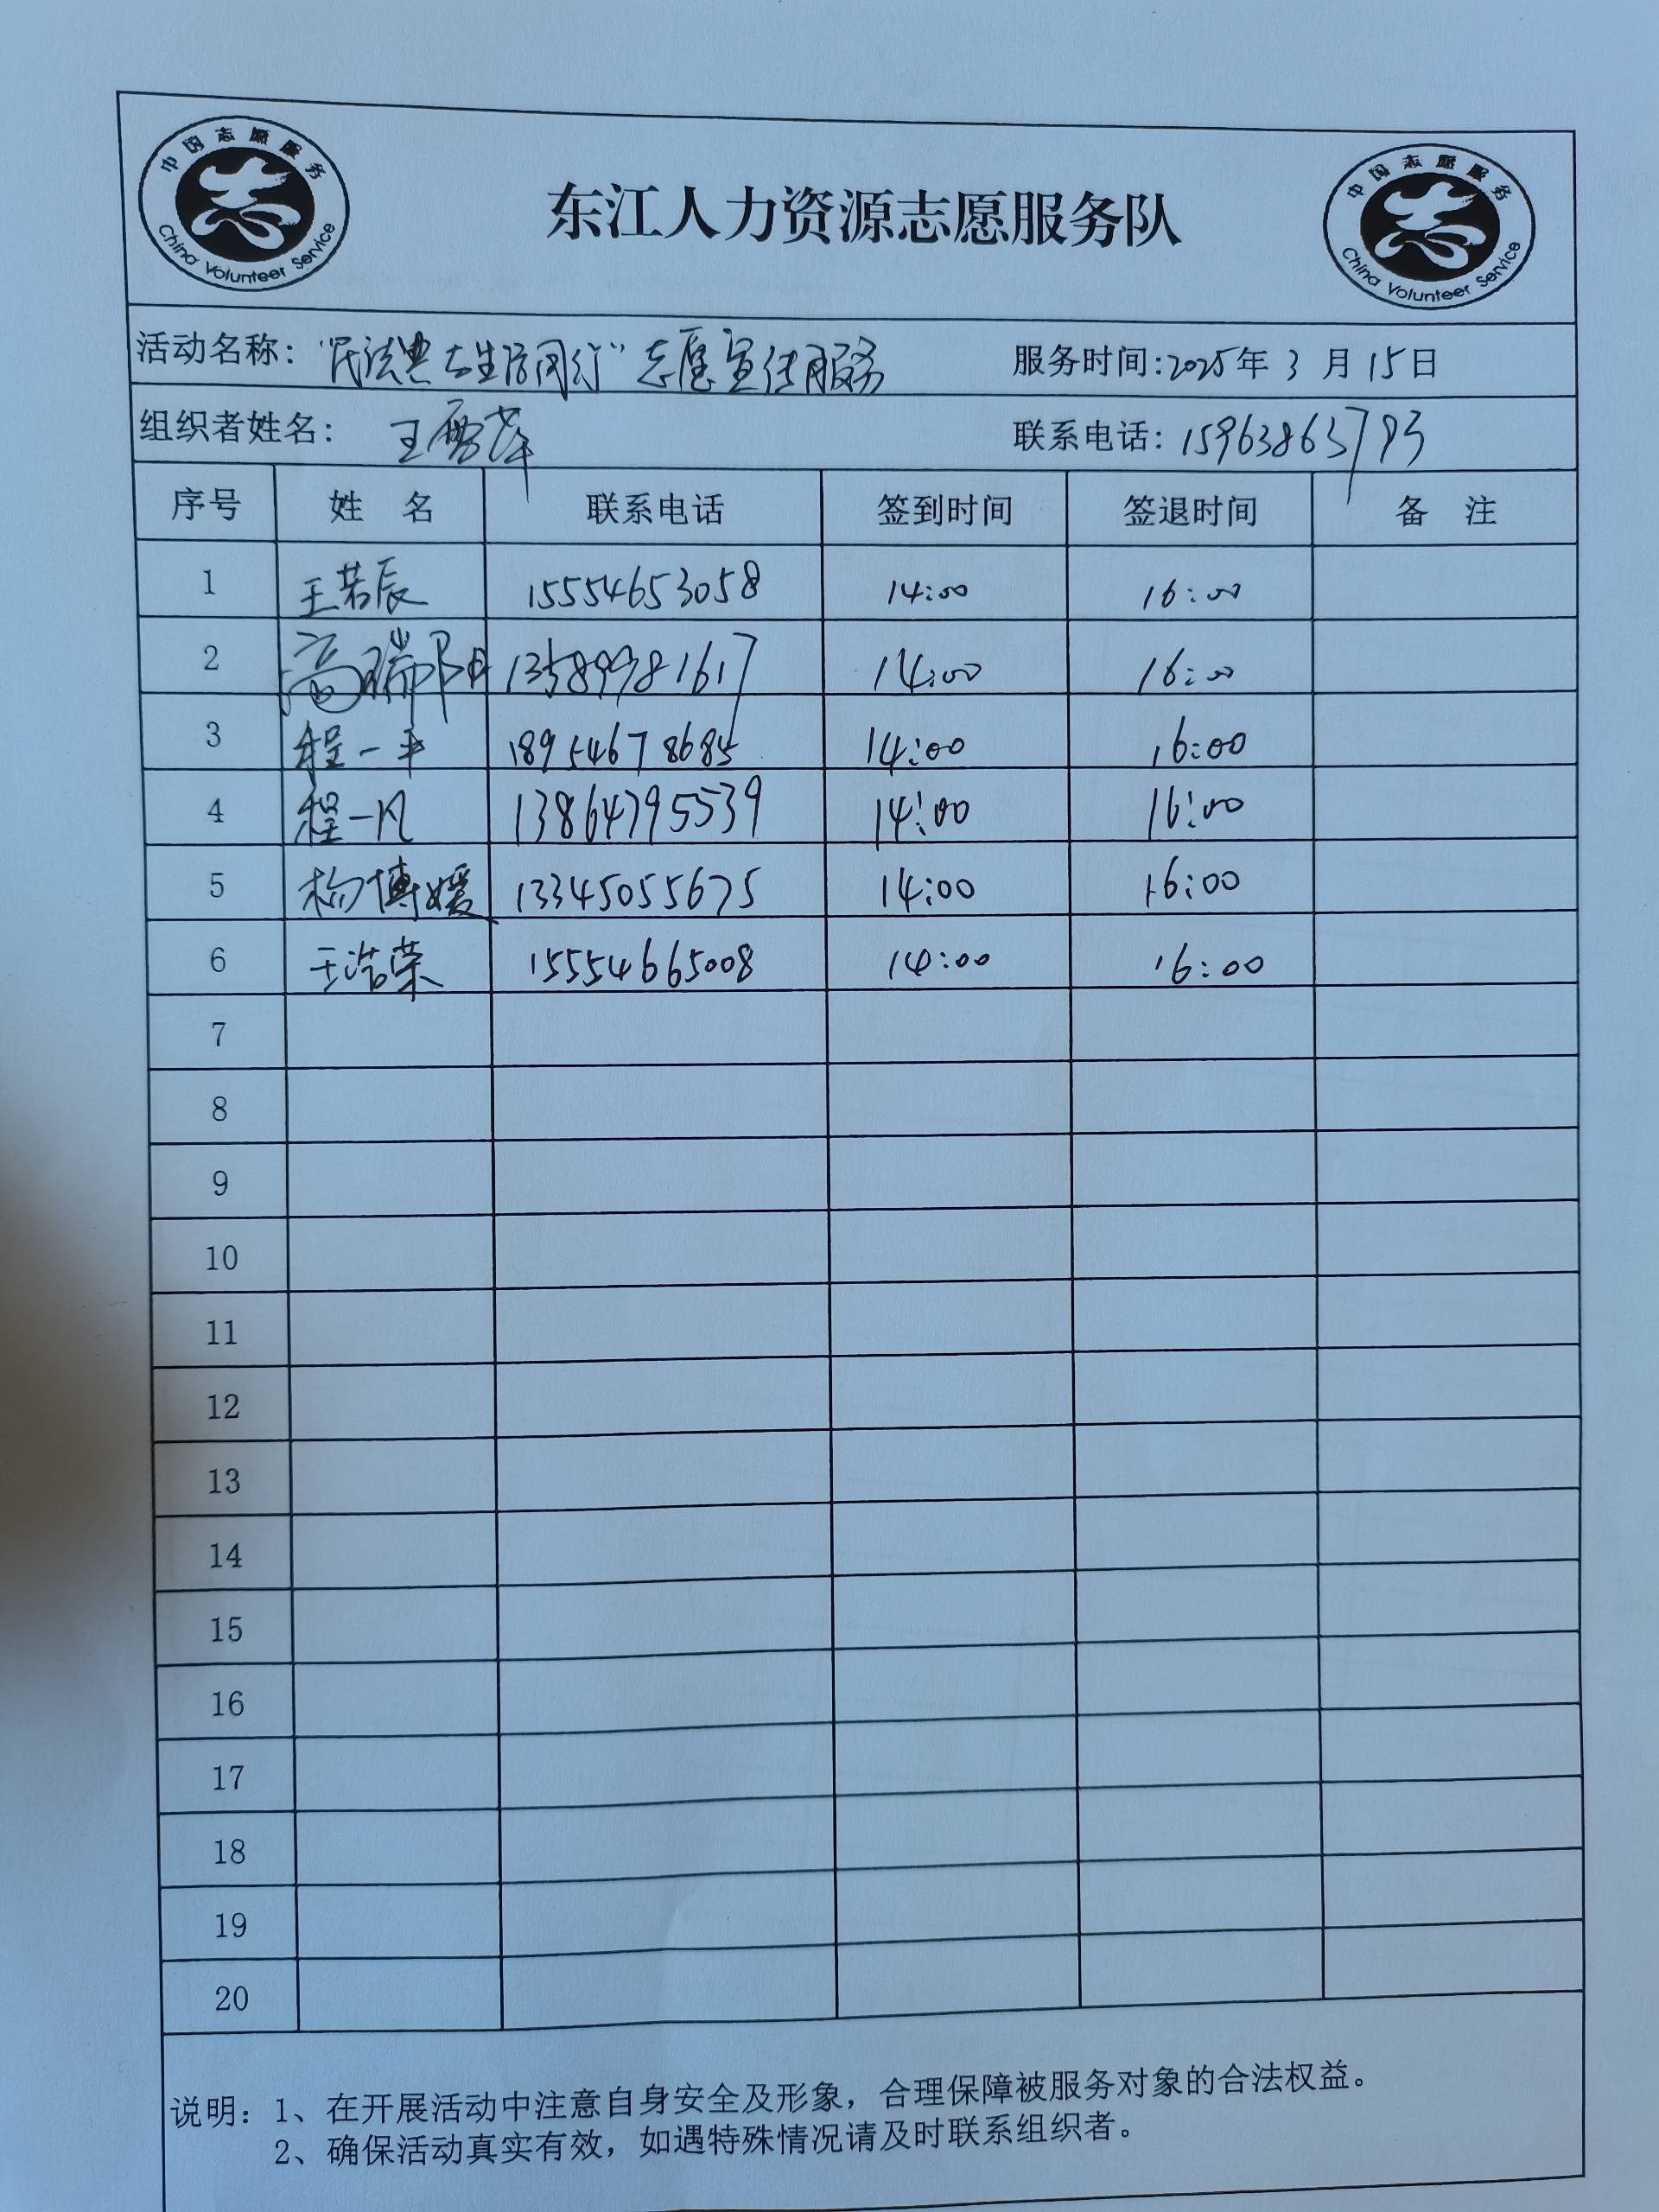 中国志愿服务
China Volunteer Service
东江人力资源志愿服务队
中国志愿服务
China Volunteer Service
活动名称：“民法典与生活同行”志愿宣传服务 服务时间:2025年 3 月 15日
组织者姓名： 王雪萍 联系电话：15963863793
序号 姓 名 联系电话 签到时间 签退时间 备 注
1 王若辰 15554653058 14:00 16:00
2 高瑞阳 13589981617 14:00 16:00
3 程一平 18954678685 14:00 16:00
4 程一凡 13864795539 14:00 16:00
5 杨博媛 13345055675 14:00 16:00
6 王浩荣 15554665008 14:00 16:00
7
8
9
10
11
12
13
14
15
16
17
18
19
20
说明：1、在开展活动中注意自身安全及形象，合理保障被服务对象的合法权益。
2、确保活动真实有效，如遇特殊情况请及时联系组织者。